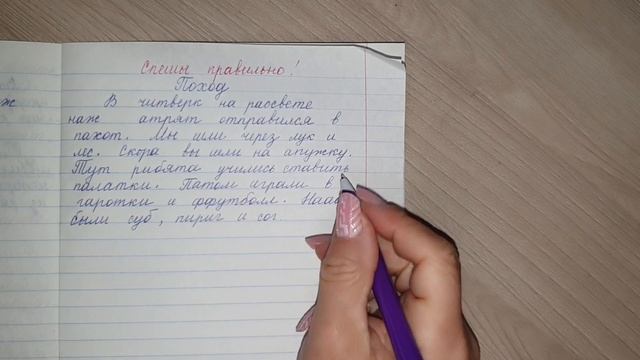 ж
Спешы правильно!
Поход
В читверк на рассвете
наж атрят отправился в
пахот. Мы шли через лук и
лес. Скора вы шли на апужку.
Тут рибята учились ставить
палатки. Патом играли в
гаротки и ффутболл.
были суб, пириг и сог.